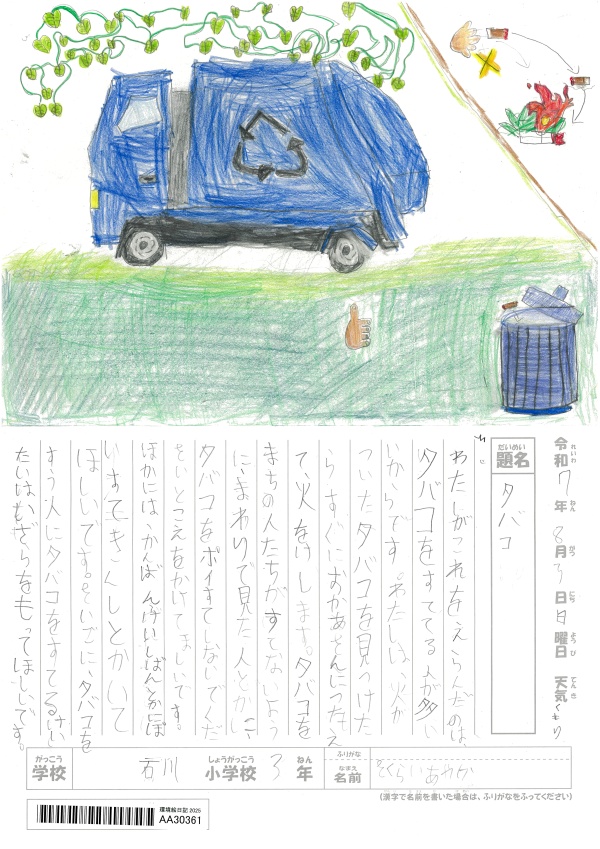 令和7年8月3日日曜日 天気くもり
れいわ ねん がつ にち ようび てんき
だいめい
題名
タバコ
わたしがこれをえらんだのは、
タバコをすててる人が多
いからです。わたしは、火が
ついたタバコを見つけた
らすぐにおかあさんにつたえ
て、火をけします。タバコを
まちの人たちがすてないよう
にまわりで見た人とかに
タバコをポイすてしないでくだ
さいとこえをかけてほしいです。
ほかには、かんばん、けいじばんとかにぽ
いすてきんしとかいて
ほしいです。さいごに、タバコを
すう人にタバコをすてるけい
たいはいざらをもってほしいです。
がっこう
学校
石川 小学校 3年
しょうがっこう ねん
ふりがな
なまえ
名前
さくらいあやか
(漢字で名前を書いた場合は、ふりがなをふってください)
環境絵日記 2025
AA30361